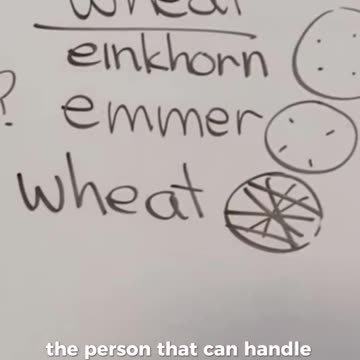 wheat
einkhorn
? emmer
wheat
the person that can handle